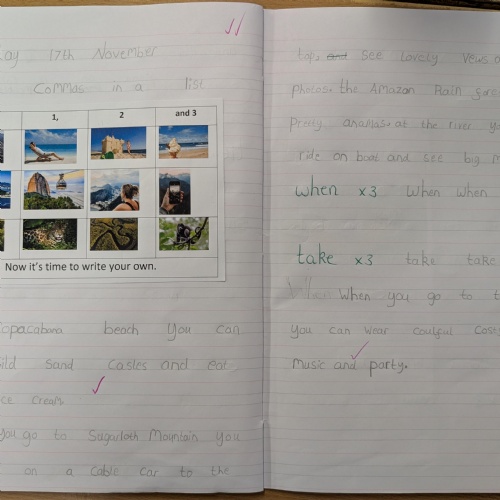 17th November
Commas in a list
1, 2 and 3
Now it's time to write your own.
Copacabana beach you can
sand casles and eat
ice cream
you go to Sugarloth Mountain you
on a cable car to the
top, and see lovely veiws
photoss the Amazon Rain
pretty anamals at the river
ride on boat and see big
when x3 when when
take x3 take take
When you go to
you can wear coulful
music and party.